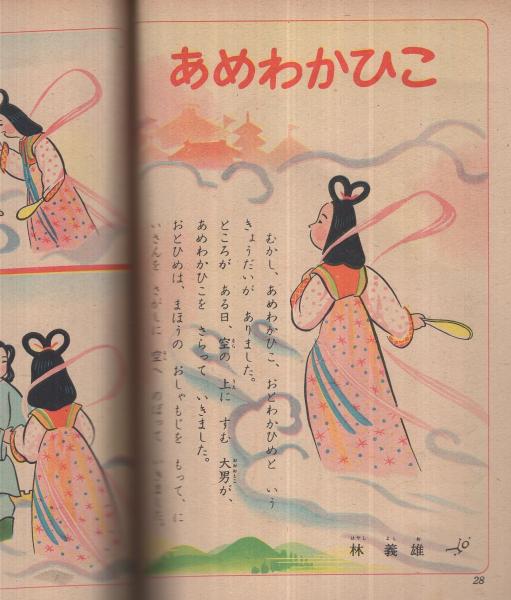 あめわかひこ
むかし、あめわかひこ、おとわかひめと いう
きょうだいが ありました。
ところが ある日、空の 上に すむ 大男が、
あめわかひこを さらって いきました。
おとひめは、まほうの おしゃもじを もって、に
いさんを さがしに 空へ のぼって いきました。
林 義雄
28